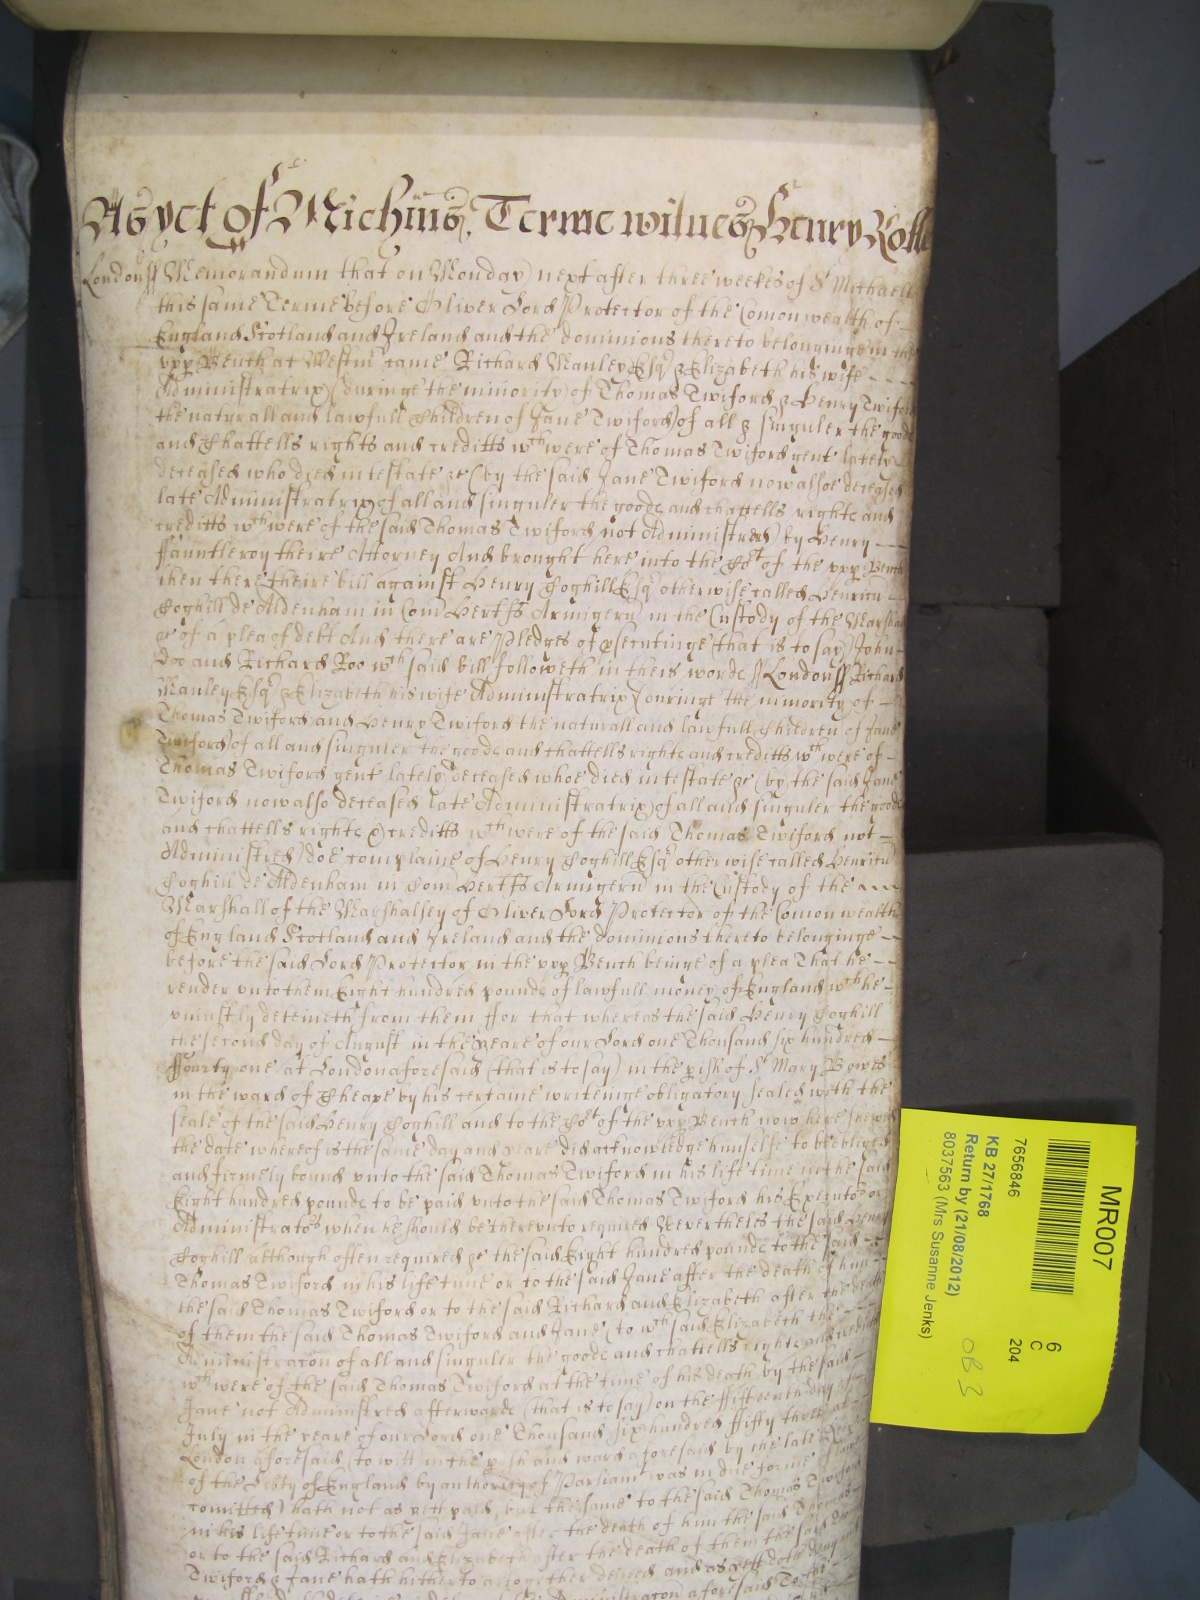 As yet of Michius Terme witnes Henry Rolle
Londonss Memorandum that on Monday next after three weekes of St Michaell
this same Terme before Oliver Lord Protector of the Comon wealth of
England Scotland and Ireland and the dominions thereto belonginge in the
upp Bench at Westm came Richard Manley Esqr & Elizabeth his wife
Administratrix (duringe the minority of Thomas Twiford & Henry Twiford
the naturall and lawfull Children of Jane Twiford) of all & singuler the goods
and Chattells rights and creditts wch were of Thomas Twiford gent lately
deceased who dyed intestate &c (by the said Jane Twiford now alsoe deceased
late Administratrix of all and singuler the goods and chattells rights and
creditts wch were of the said Thomas Twiford not Administred) by Henry
ffauntleroy theire Attorney And brought here into the Cot of the upp Bench
then there theire bill against Henry Coghill Esqr otherwise called Henricu
Coghill de Aldenham in Com Hertfs Armigeru in the Custody of the Marshall
&c of a plea of debt And there are Pledges of psecutinge (that is to say) John
Doo and Richard Roo wch said bill followeth in theis words ss Londonss Richard
Manley Esqr & Elizabeth his wife Administratrix (duringe the minority of
Thomas Twiford and Henry Twiford the naturall and lawfull Children of Jane
Twiford) of all and singuler the goods and chattells rights and creditts wch were of
Thomas Twiford gent lately deceased whoe died intestate &c (by the said Jane
Twiford now also deceased late Administratrix of all and singuler the goods
and chattells rights & creditts wch were of the said Thomas Twiford not
Administred) doe complaine of Henry Coghill Esqr otherwise called Henricu
Coghill de Aldenham in Com Hertfs Armigeru in the Custody of the
Marshall of the Marshalsey of Oliver Lord Protector of the Comon wealth
of England Scotland and Ireland and the dominions thereto belonginge
before the said Lord Protector in the upp Bench beinge of a plea That he
render unto them Eight hundred pounds of lawfull money of England wch he
uniustly deteineth from them ffor that whereas the said Henry Coghill
the second day of August in the yeare of our Lord one Thousand six hundred
ffourty one at London aforesaid (that is to say) in the pish of St Mary Bowes
in the ward of Cheape by his certaine writeinge obligatory sealed with the
seale of the said Henry Coghill and to the Cot of the upp Bench now here shewed
the date whereof is the same day and yeare did acknowledge himselfe to be obliged
and firmely bound unto the said Thomas Twiford in his life time in the said
Eight hundred pounds to be paid unto the said Thomas Twiford his Executors or
Administrators when he should be thereunto required Nevertheles the said Henry
Coghill although often required &c the said Eight hundred pounds to the said
Thomas Twiford in his life time or to the said Jane after the death of him
the said Thomas Twiford or to the said Richard and Elizabeth after the death
of them the said Thomas Twiford and Jane (to wch said Elizabeth the
Administracon of all and singuler the goods and chattells rights and creditts
wch were of the said Thomas Twiford at the time of his death by the said
Jane not Administred afterwards (that is to say) on the ffifteenth day of
July in the yeare of our Lord one Thousand six hundred ffifty three at
London aforesaid (to witt in the pish and ward aforesaid by the late
of the Libty of England by authority of Parliamt was in due forme
comitted) hath not as yett paid, but the same to the said Thomas Twiford
in his life time or to the said Jane after the death of him the said Thomas
or to the said Richard and Elizabeth after the death of them the said
Twiford & Jane hath hitherto altogether denied and as yett doth deny
Administracon aforesaid To the
MR007
7656846
6
C
204
KB 27/1768
Return by (21/08/2012)
8037563 (Mrs Susanne Jenks)